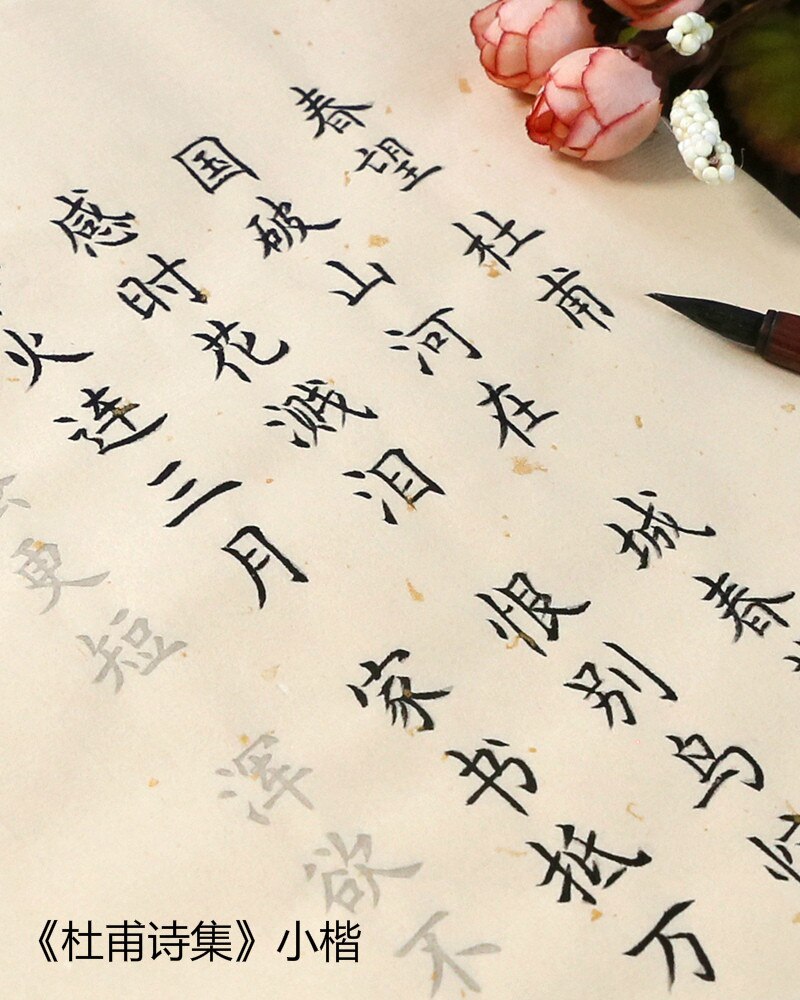 春望 杜甫
国破山河在 城春
感时花溅泪 恨别鸟
火连三月 家书抵万
更短 浑欲不
《杜甫诗集》小楷